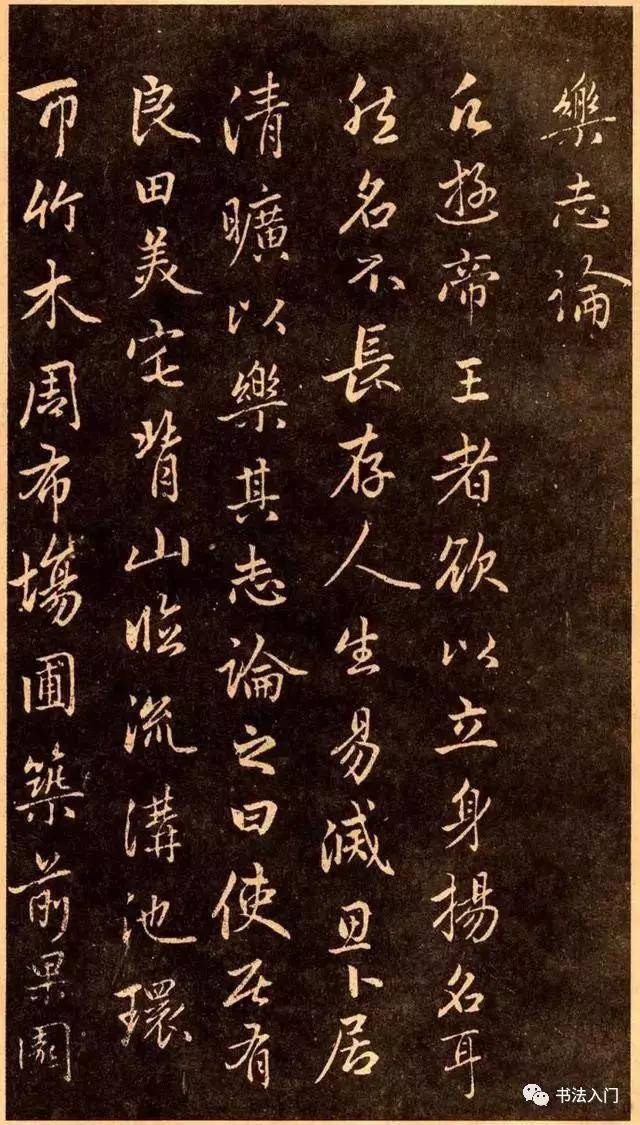 樂志論
凡遊帝王者欲以立身揚名耳
然名不長存人生易滅思卜居
清曠以樂其志論之曰使居有
良田美宅背山臨流溝池環
帀竹木周布塲圃築前果園
书法入门